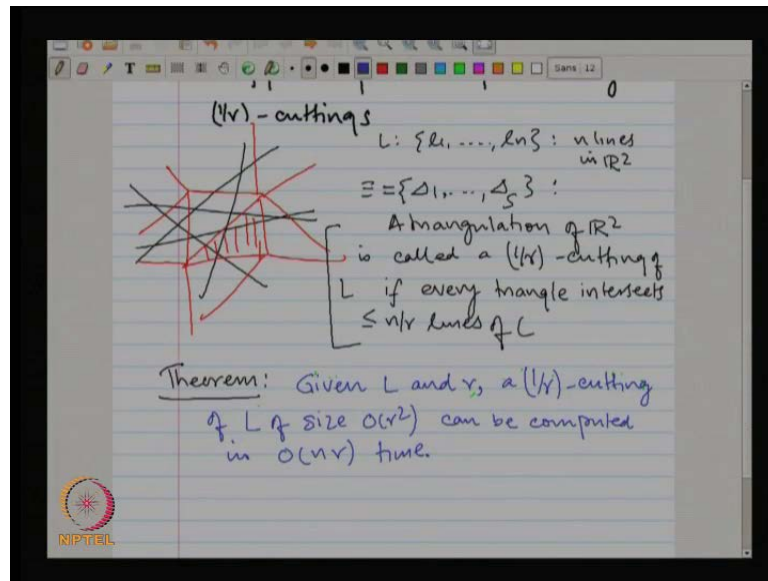 T
Sans 12
0
(1/r) - cuttings
L: {l1, ...., ln} : n lines
in ℝ²
Ξ = {Δ1, ..., Δs} :
A triangulation of ℝ²
is called a (1/r) - cutting of
L if every triangle intersects
≤ n/r lines of L
Theorem: Given L and r, a (1/r) - cutting
of L of size O(r²) can be computed
in O(nr) time.
NPTEL